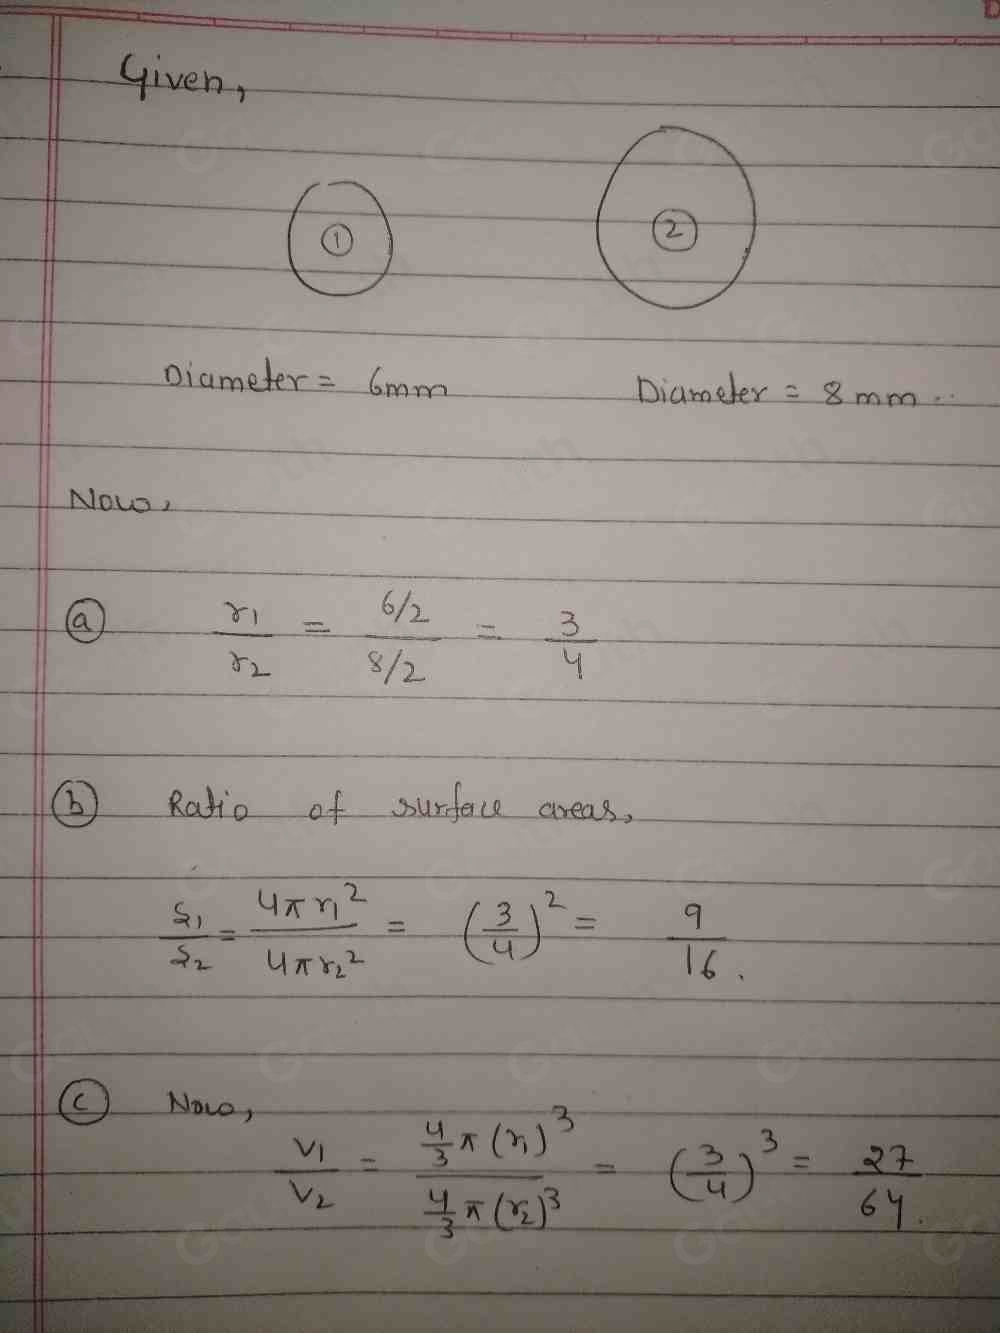 Given,
① ②
Diameter = 6mm Diameter = 8 mm..
Now,
ⓐ r1/r2 = (6/2)/(8/2) = 3/4
ⓑ Ratio of surface areas,
S1/S2 = 4πr1²/4πr2² = (3/4)² = 9/16.
ⓒ Now,
V1/V2 = (4/3 π(r1)³)/(4/3 π(r2)³) = (3/4)³ = 27/64.